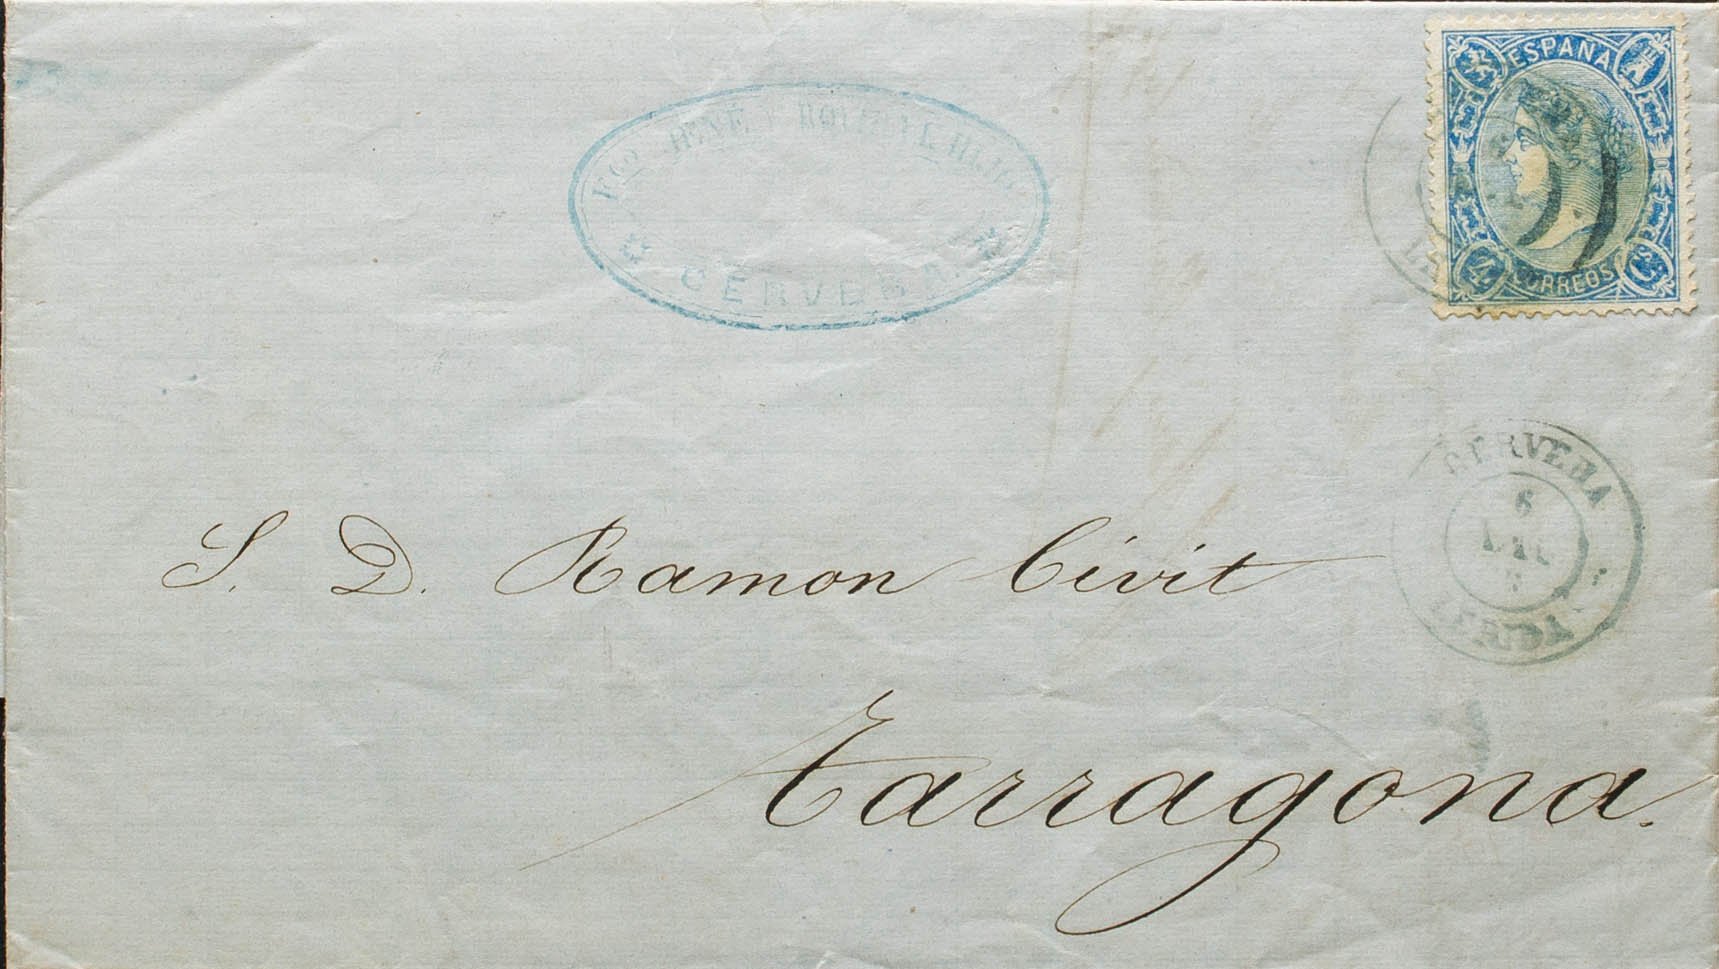 ESPAÑA
4 Cs
CORREOS
CERVERA
CERVERA
6
LERIDA
S. D. Ramon Civit
Tarragona.